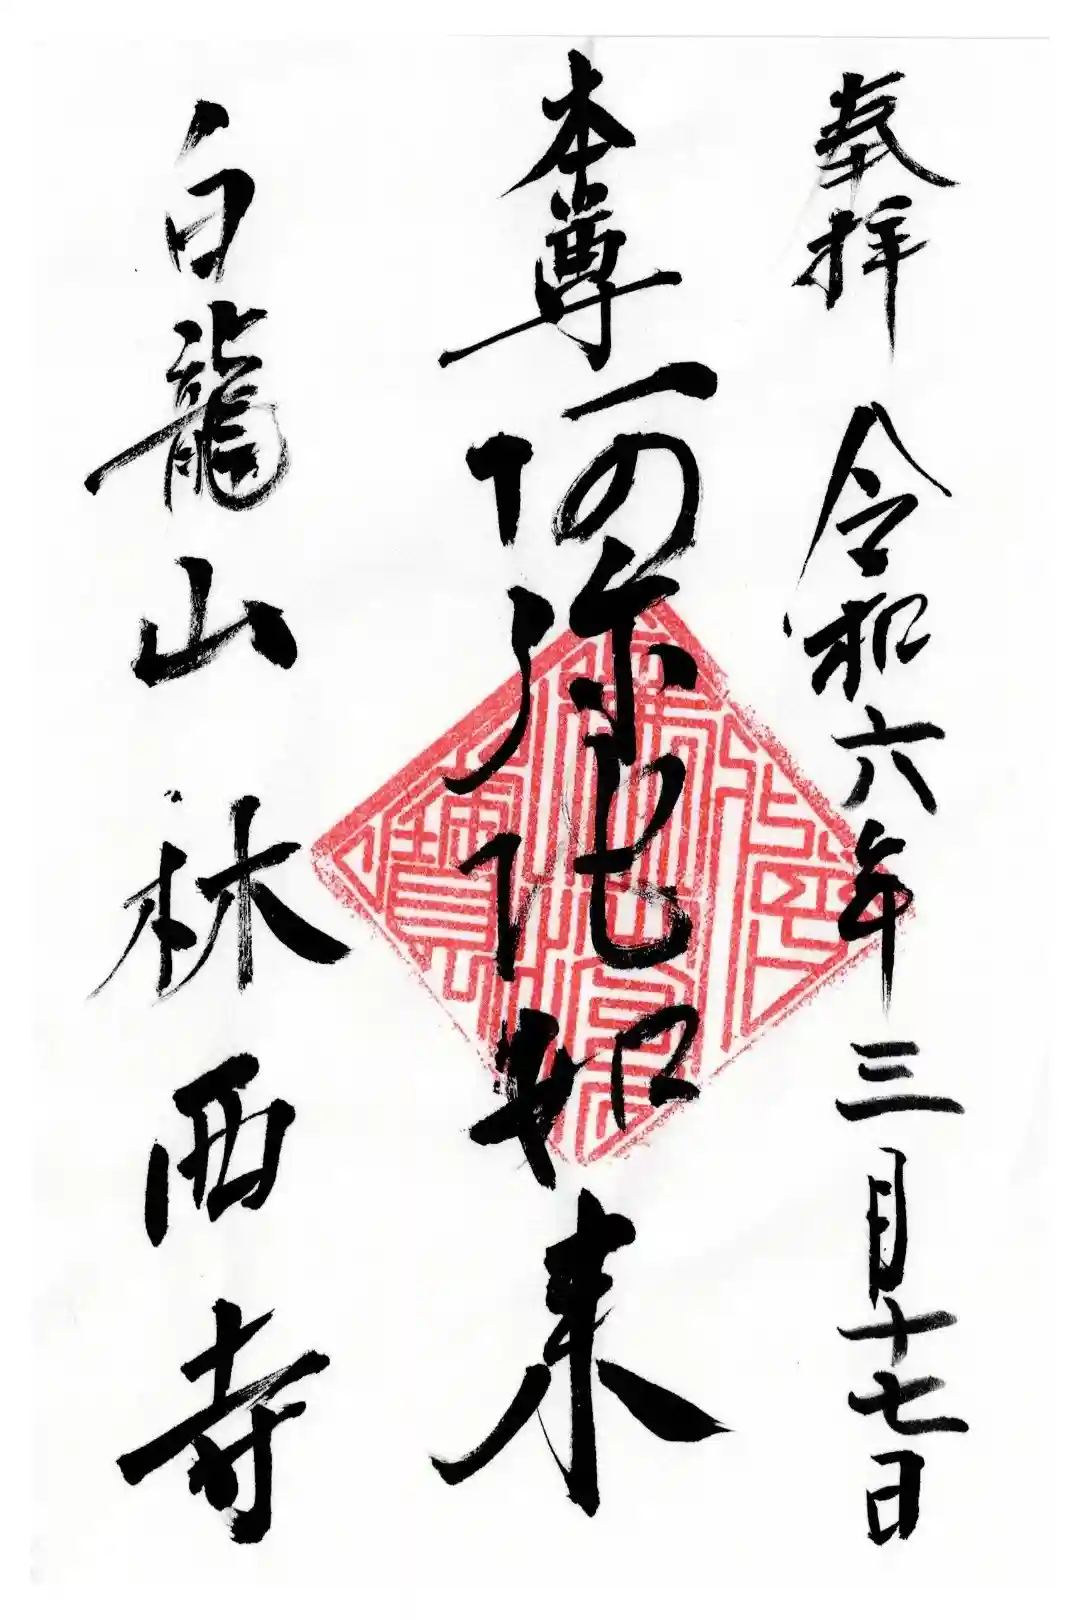 奉拝 令和六年三月十七日
本尊 阿弥陀如来
白龍山林西寺